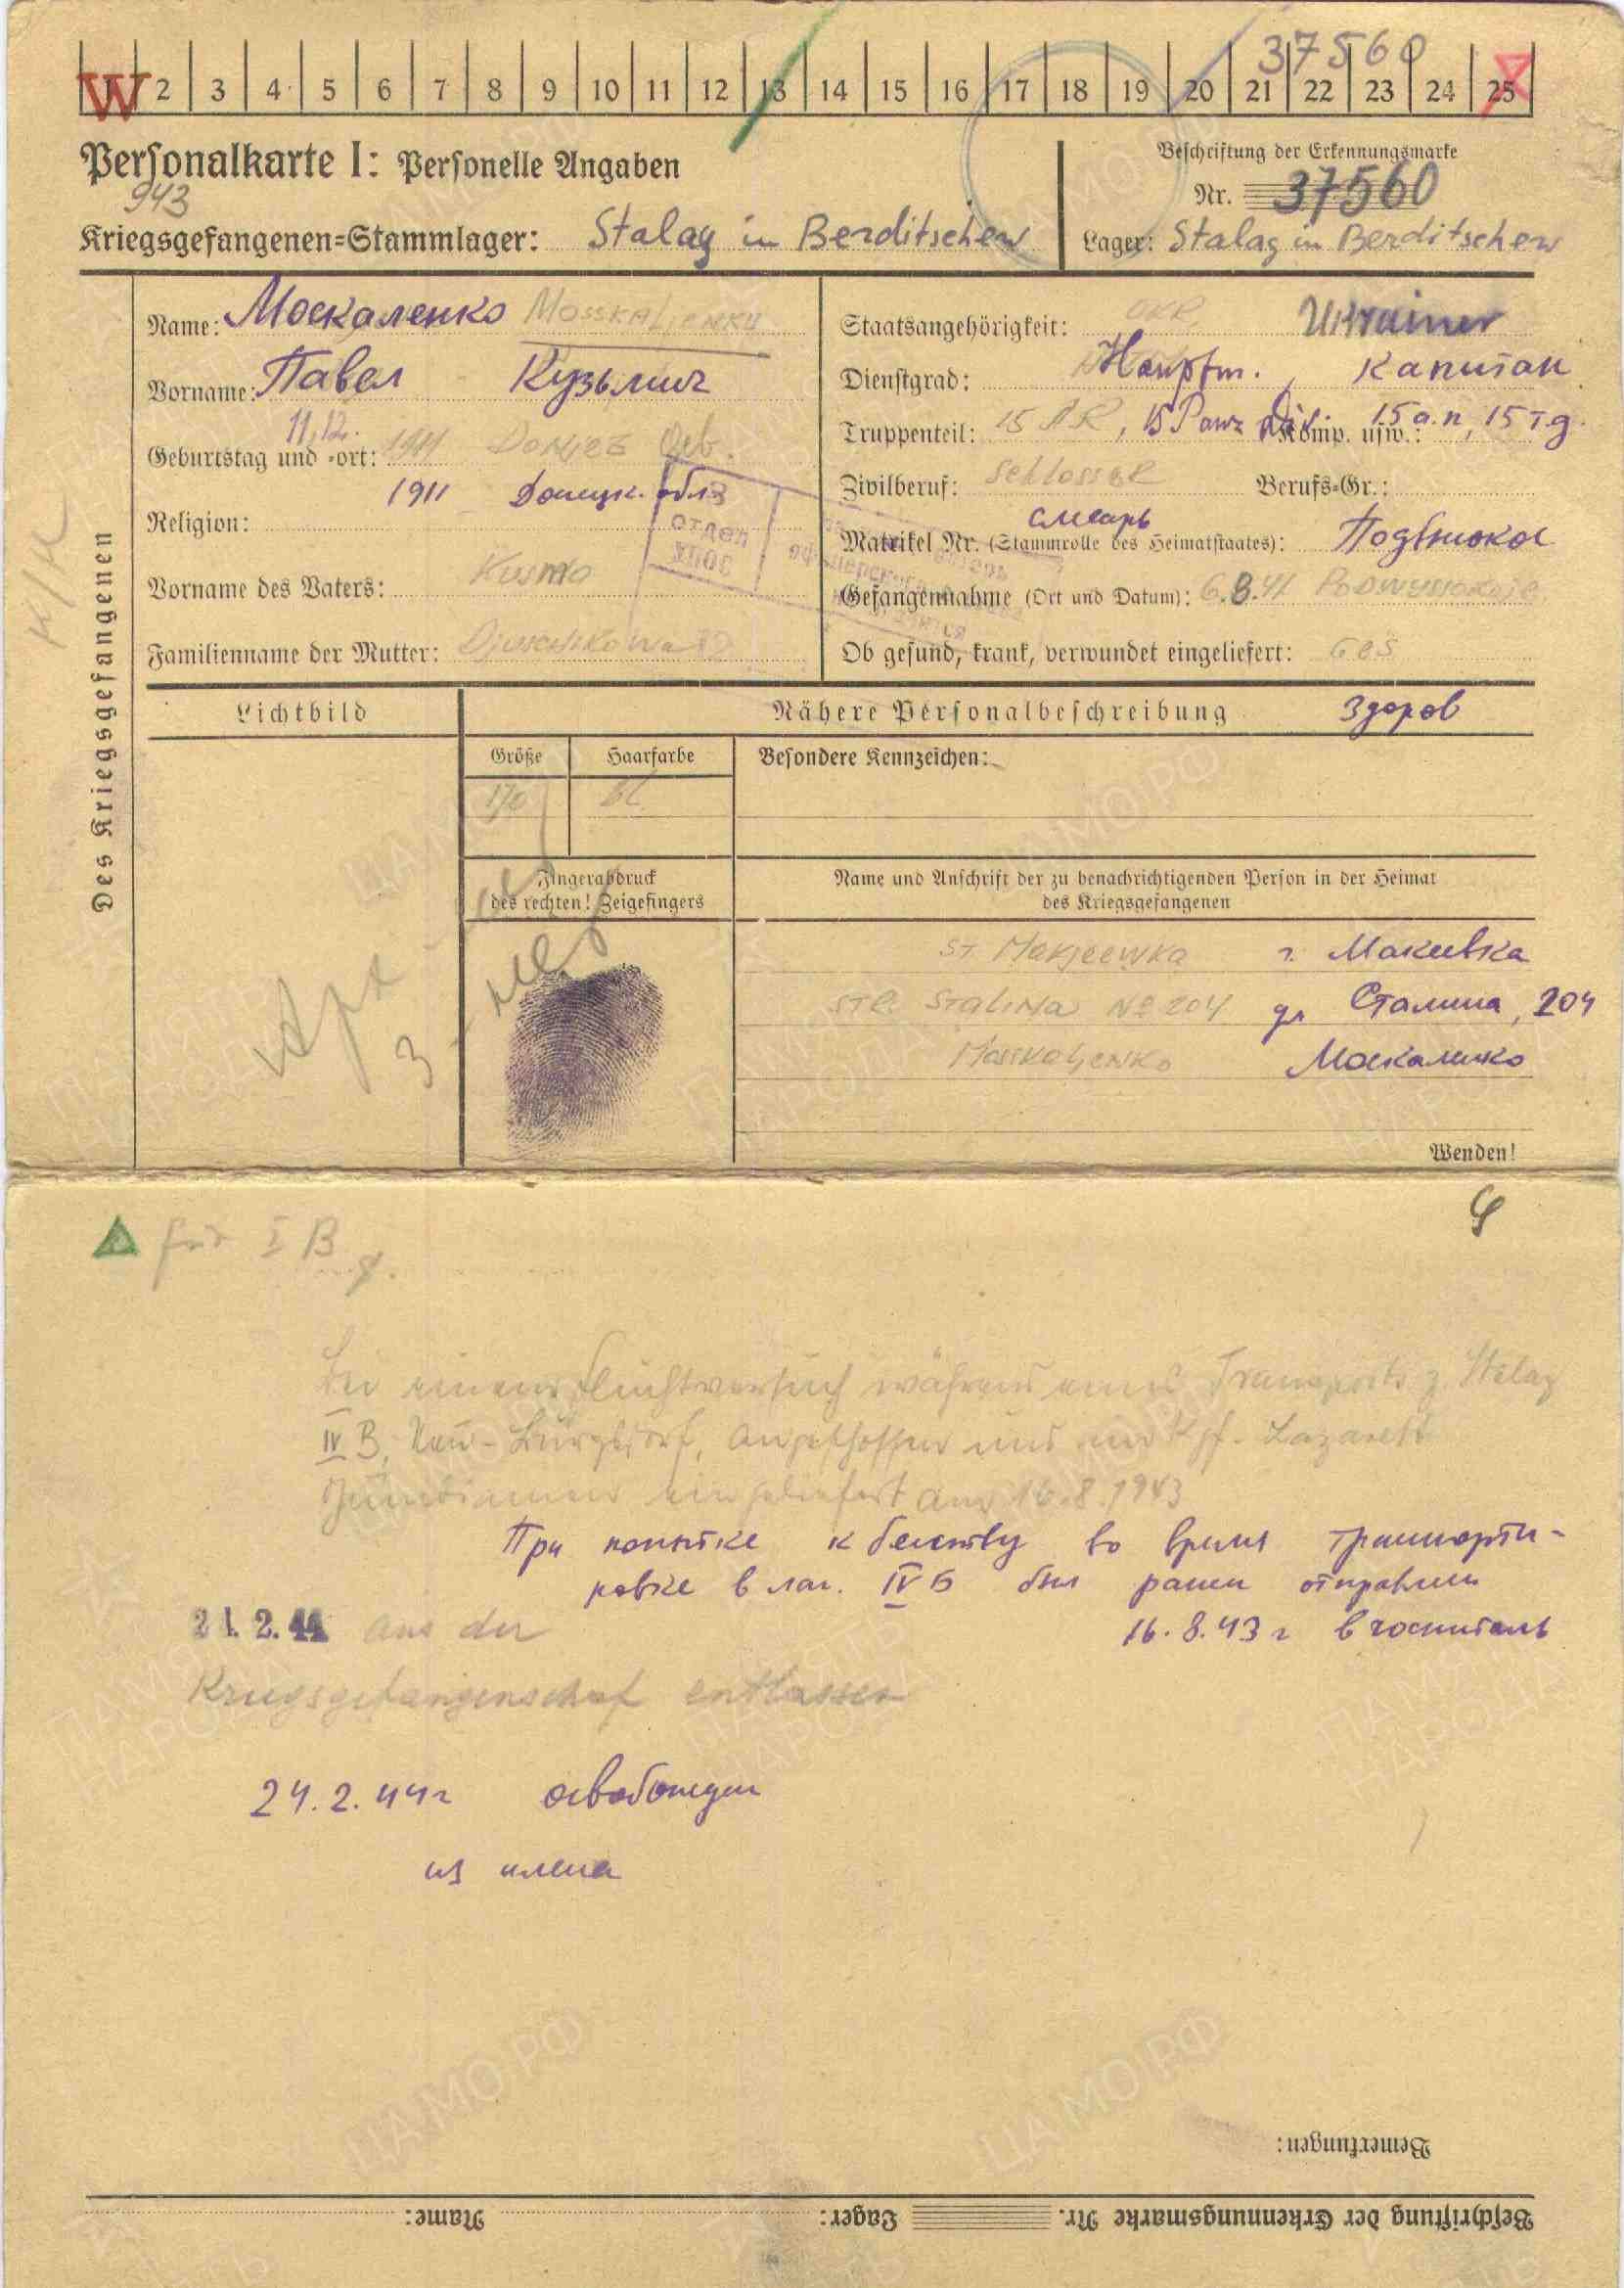 37560
W 2 3 4 5 6 7 8 9 10 11 12 13 14 15 16 17 18 19 20 21 22 23 24 25
Personalkarte I: Personelle Angaben
Beschriftung der Erkennungsmarke
943
Nr. 37560
Kriegsgefangenen=Stammlager: Stalag in Berditschew
Lager: Stalag in Berditschew
Des Kriegsgefangenen
Name: Москаленко MOSSKALJENKO
Vorname: Павел Кузьмич
11.12.
Geburtstag und =ort: 1911 Donjez Geb.
1911 Донецк. обл.
Religion:
Vorname des Vaters: Kusmo
Familienname der Mutter:
отдел
Staatsangehörigkeit: UKR. Ukrainer
Dienstgrad: Hauptm., Капитан
Truppenteil: 15 AR, 15 Panz Div. Komp. usw.: 15 а.п, 15 т.д.
Zivilberuf: Schlosser Berufs=Gr.:
слесарь
Matrikel Nr. (Stammrolle des Heimatstaates):
Gefangennahme (Ort und Datum): 6.8.41 Podwyssokoje
Ob gesund, krank, verwundet eingeliefert: Ges
Здоров
Lichtbild
Nähere Personalbeschreibung
Größe
Haarfarbe
Besondere Kennzeichen:
170 bl.
Fingerabdruck
des rechten! Zeigefingers
Name und Anschrift der zu benachrichtigenden Person in der Heimat
des Kriegsgefangenen
ST. Makjeewka г. Макеевка
STR. Stalina № 204 ул Сталина, 204
Mosskaljenko Москаленко
Wenden!
für I B
Bei einem Fluchtversuch während eines Transports z. Stalag
IV B, Neu-Burgsdorf, angeschossen und
eingeliefert am 16.8.1943
При попытке к бегству во время транспорти-
ровке в лаг. IV Б был ранен отправлен
16.8.43 г в госпиталь
21. 2. 44 aus der
Kriegsgefangenschaf entlassen
24.2.44 г освобожден
из плена
Bemerkungen:
Beschriftung der Erkennungsmarke Nr. Lager: Name:
ЦАМО.РФ
ПАМЯТЬ НАРОДА